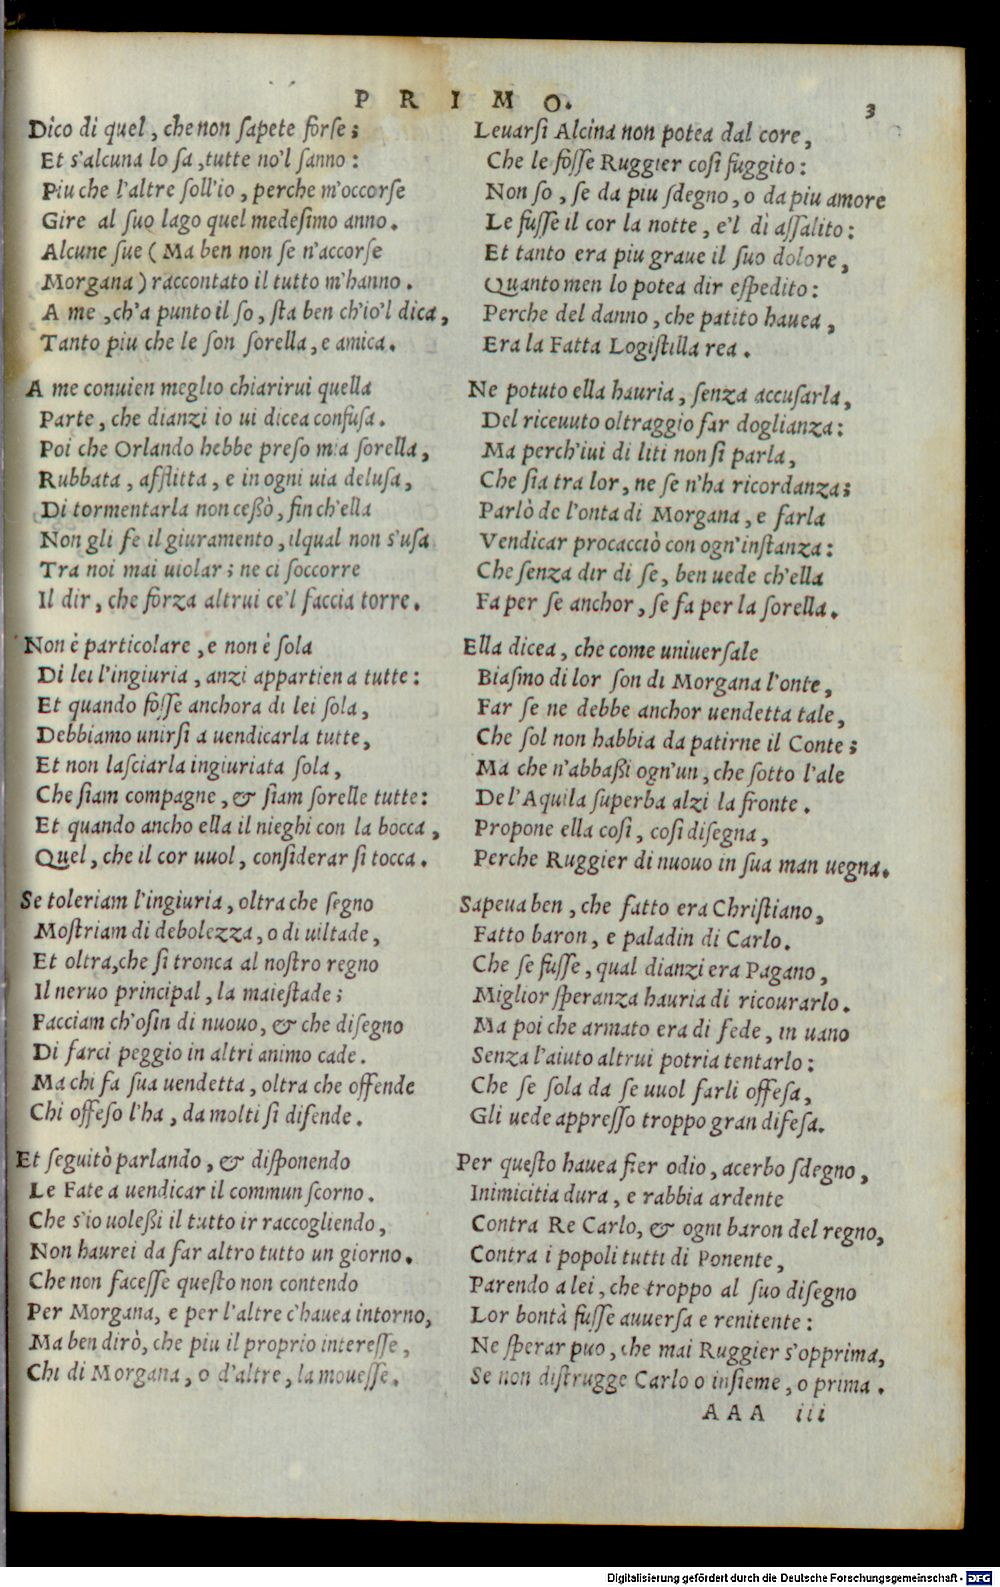 PRIMO. 3
Dico di quel, che non sapete forse;
Et s'alcuna lo sa, tutte no'l sanno:
Piu che l'altre soll'io, perche m'occorse
Gire al suo lago quel medesimo anno.
Alcune sue (Ma ben non se n'accorse
Morgana) raccontato il tutto m'hanno.
A me, ch'a punto il so, sta ben ch'io'l dica,
Tanto piu che le son sorella, e amica.
A me conuien meglio chiarirui quella
Parte, che dianzi io ui dicea confusa.
Poi che Orlando hebbe preso mia sorella,
Rubbata, afflitta, e in ogni uia delusa,
Di tormentarla non ceßò, fin ch'ella
Non gli fe il giuramento, ilqual non s'usa
Tra noi mai uiolar; ne ci soccorre
Il dir, che forza altrui ce'l faccia torre.
Non è particolare, e non è sola
Di lei l'ingiuria, anzi appartien a tutte:
Et quando fosse anchora di lei sola,
Debbiamo unirsi a uendicarla tutte,
Et non lasciarla ingiuriata sola,
Che siam compagne, & siam sorelle tutte:
Et quando ancho ella il nieghi con la bocca,
Quel, che il cor uuol, considerar si tocca.
Se toleriam l'ingiuria, oltra che segno
Mostriam di debolezza, o di uiltade,
Et oltra, che si tronca al nostro regno
Il neruo principal, la maiestade;
Facciam ch'osin di nuouo, & che disegno
Di farci peggio in altri animo cade.
Ma chi fa sua uendetta, oltra che offende
Chi offeso l'ha, da molti si difende.
Et seguitò parlando, & disponendo
Le Fate a uendicar il commun scorno.
Che s'io uoleßi il tutto ir raccogliendo,
Non haurei da far altro tutto un giorno.
Che non facesse questo non contendo
Per Morgana, e per l'altre c'hauea intorno,
Ma ben dirò, che piu il proprio interesse,
Chi di Morgana, o d'altre, la mouesse.
Leuarsi Alcina non potea dal core,
Che le fosse Ruggier cosi fuggito:
Non so, se da piu sdegno, o da piu amore
Le fusse il cor la notte, e'l dì assalito:
Et tanto era piu graue il suo dolore,
Quanto men lo potea dir espedito:
Perche del danno, che patito hauea,
Era la Fatta Logistilla rea.
Ne potuto ella hauria, senza accusarla,
Del riceuuto oltraggio far doglianza:
Ma perch'iui di liti non si parla,
Che sia tra lor, ne se n'ha ricordanza;
Parlò de l'onta di Morgana, e farla
Vendicar procacciò con ogn'instanza:
Che senza dir di se, ben uede ch'ella
Fa per se anchor, se fa per la sorella.
Ella dicea, che come uniuersale
Biasmo di lor son di Morgana l'onte,
Far se ne debbe anchor uendetta tale,
Che sol non habbia da patirne il Conte;
Ma che n'abbaßi ogn'un, che sotto l'ale
De l'Aquila superba alzi la fronte.
Propone ella cosi, cosi disegna,
Perche Ruggier di nuouo in sua man uegna.
Sapeua ben, che fatto era Christiano,
Fatto baron, e paladin di Carlo.
Che se fusse, qual dianzi era Pagano,
Miglior speranza hauria di ricourarlo.
Ma poi che armato era di fede, in uano
Senza l'aiuto altrui potria tentarlo:
Che se sola da se uuol farli offesa,
Gli uede appresso troppo gran difesa.
Per questo hauea fier odio, acerbo sdegno,
Inimicitia dura, e rabbia ardente
Contra Re Carlo, & ogni baron del regno,
Contra i popoli tutti di Ponente,
Parendo a lei, che troppo al suo disegno
Lor bontà fusse auuersa e renitente:
Ne sperar puo, che mai Ruggier s'opprima,
Se non distrugge Carlo o insieme, o prima.
AAA iii
Digitalisierung gefördert durch die Deutsche Forschungsgemeinschaft - DFG